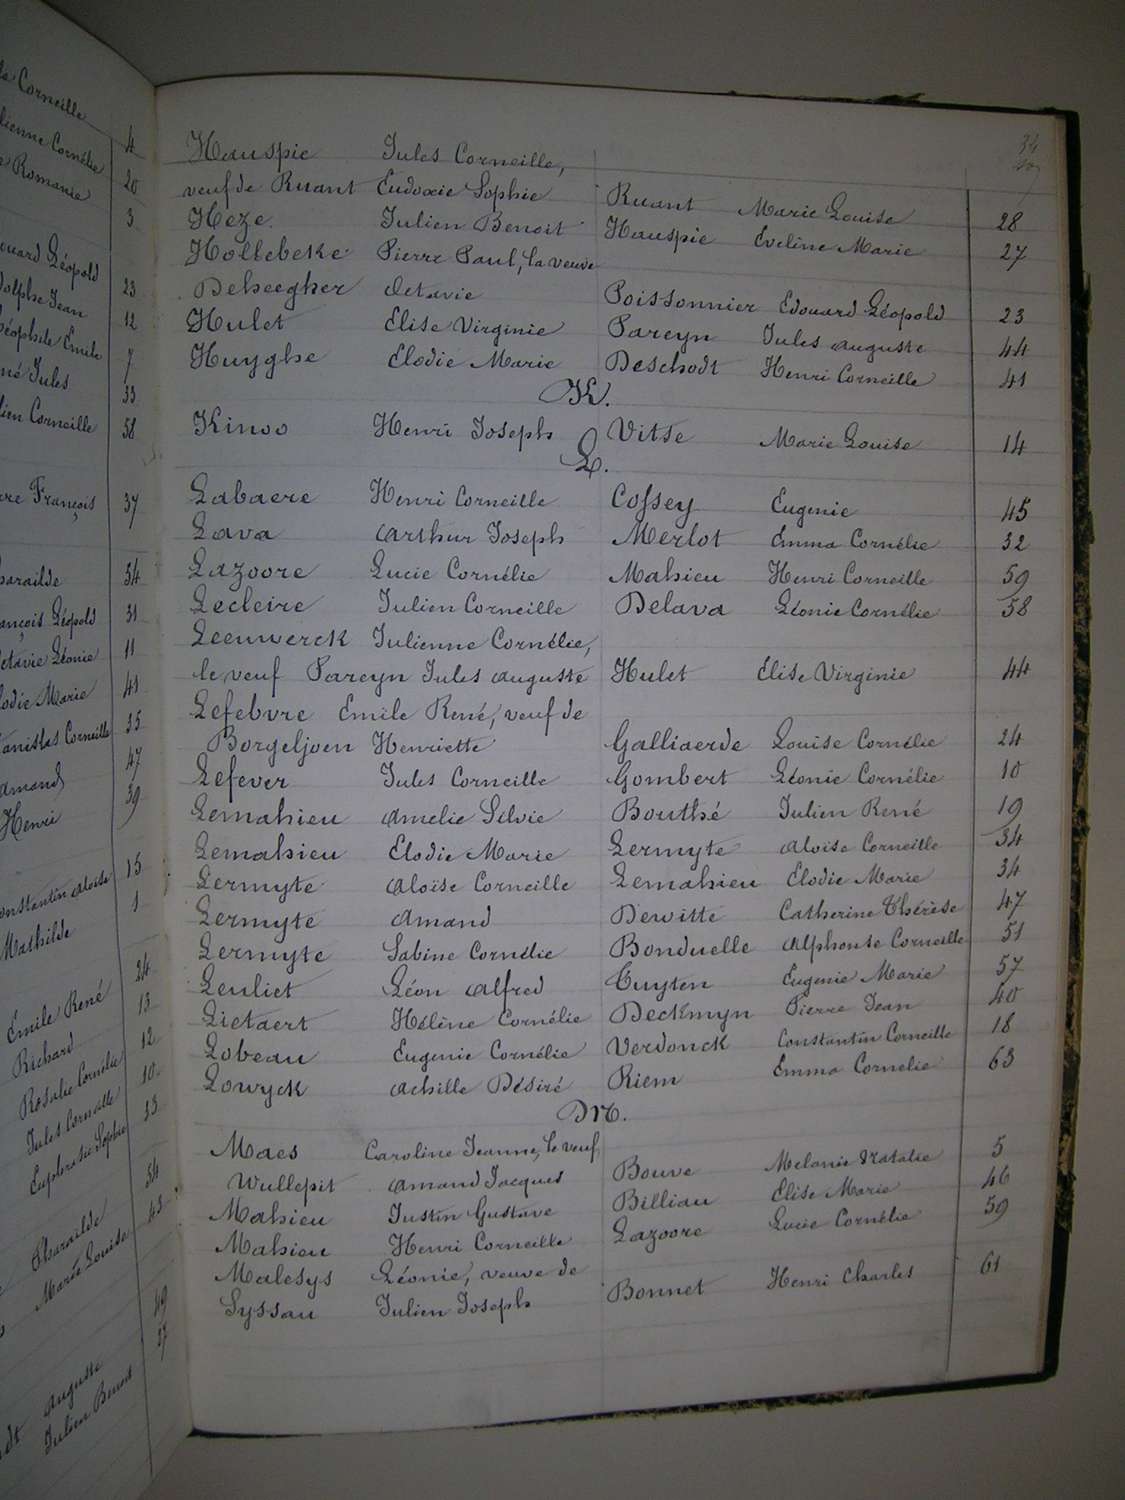 Hauspie Jules Corneille,
veuf de Ruant Eudoxie Sophie Ruant Marie Louise 28
Heze Julien Benoit Hauspie Eveline Marie 27
Hollebeke Pierre Paul, la veuve
Deheegher Octavie Poissonnier Edouard Léopold 23
Hulet Elise Virginie Pareyn Jules Auguste 44
Huyghe Elodie Marie Deschodt Henri Corneille 41
K.
Kinoo Henri Joseph Vitse Marie Louise 14
L.
Labaere Henri Corneille Cossey Eugenie 45
Lava Arthur Joseph Merlot Emma Cornélie 32
Lazoore Lucie Cornélie Mahieu Henri Corneille 59
Lecleire Julien Corneille Delava Léonie Cornélie 58
Leeuwerck Julienne Cornélie,
le veuf Pareyn Jules Auguste Hulet Elise Virginie 44
Lefebvre Emile René, veuf de
Borgeljoen Henriette Galliaerde Louise Cornélie 24
Lefever Jules Corneille Gombert Léonie Cornélie 10
Lemahieu Amelie Silvie Bouthé Julien René 19
Lemahieu Elodie Marie Lermyte Aloïse Corneille 34
Lermyte Aloïse Corneille Lemahieu Elodie Marie 34
Lermyte Amand Dewitte Catherine Thérèse 47
Lermyte Sabine Cornélie Bonduelle Alphonse Corneille 51
Leuliet Léon Alfred Tuyten Eugenie Marie 57
Lietaert Hélène Cornélie Deckmyn Pierre Jean 40
Lobeau Eugenie Cornélie Verdonck Constantin Corneille 18
Lowyck Achille Désiré Riem Emma Cornelie 63
M.
Maes Caroline Jeanne, le veuf
Wullepit Amand Jacques Bouve Melanie Natalie 5
Mahieu Justin Gustave Billiau Elise Marie 46
Mahieu Henri Corneille Lazoore Lucie Cornélie 59
Malesys Léonie, veuve de
Syssau Julien Joseph Bonnet Henri Charles 61
Corneille 4
Cornélie 20
Romanie 3
Léopold 23
Jean 12
Emile 7
Jules 33
Corneille 58
François 37
34
Léopold 31
Léonie 11
Marie 41
Corneille 35
47
Henri 39
Constantin Aloïse 15
Mathilde 1
Emile René 24
Richard 13
Rosalie Cornélie 12
Jules Corneille 10
Sophie 33
54
Marie Louise 43
49
Auguste 27
Julien Benoit